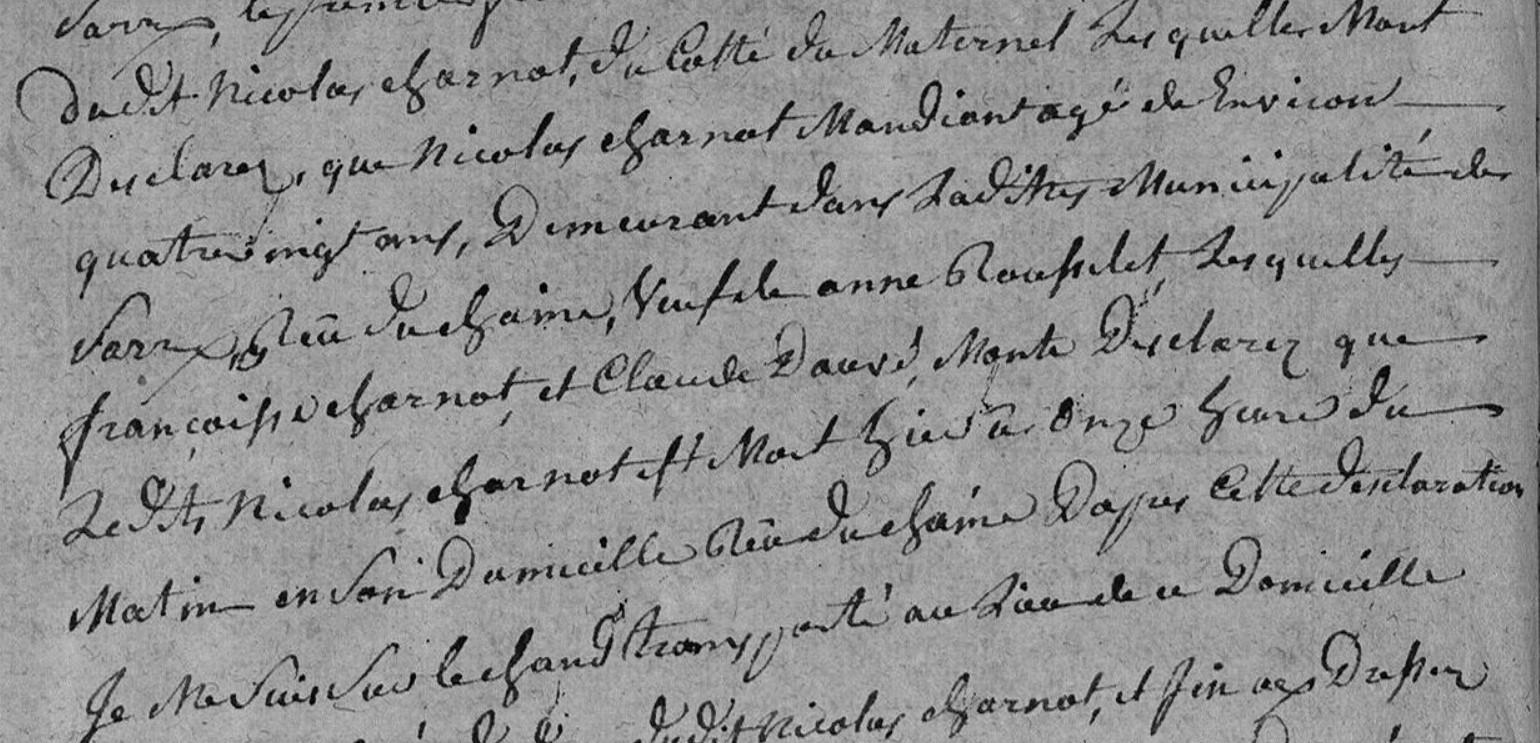 Sarry, le
dudit Nicolas charnot, du Cotté du Maternel Lesquelles Mont
Desclarez, que Nicolas charnot Mandiant agé de Environ
quatre vingt ans, Demeurant dans Laditte Municipalité de
Sarry, Rëu du chaine, Veuf de anne Rousselet, Lesquelles
françoisse charnot, et Claude Dauvé, Monte Desclarez que
Ledits Nicolas charnot est Mort hier a Onze heure du
Matin en Son Domicille Rëu du chaine Dapres Cette desclaration
Je Me Suis Sur le chand transporté au Lieu de ce Domicille
dudit Nicolas charnot, et Jen ay Dresser